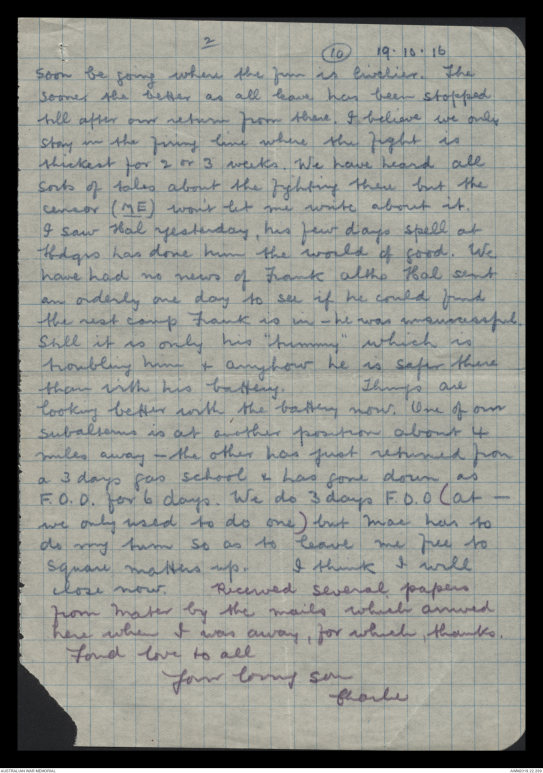 2
(10) 19.10.16
soon be going where the fun is livelier. The
sooner the better as all leave has been stopped
till after our return from there. I believe we only
stay in the firing line where the fight is
thickest for 2 or 3 weeks. We have heard all
sorts of tales about the fighting there but the
censor (ME) won't let me write about it.
I saw Hal yesterday, his few days spell at
Hdqrs has done him the world of good. We
have had no news of Frank altho Hal sent
an orderly one day to see if he could find
the rest camp Frank is in - he was unsuccessful.
Still it is only his "tummy" which is
troubling him & anyhow he is safer there
than with his battery. Things are
looking better with the battery now. One of our
subalterns is at another position about 4
miles away - the other has just returned from
a 3 days gas school & has gone down as
F.O.O. for 6 days. We do 3 days F.O.O (at -
we only used to do one) but Mac has to
do my turn so as to leave me free to
square matters up. I think I will
close now. Received several papers
from Mater by the mails which arrived
here when I was away, for which, thanks.
Fond love to all
Your loving son
Charlie
AUSTRALIAN WAR MEMORIAL